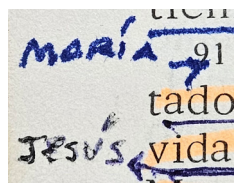 MARÍA 91
tado
JESÚS vida